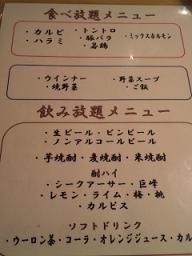 食べ放題メニュー
・カルビ ・トントロ ・ミックスホルモン
・ハラミ ・豚バラ
・若鶏
・ウインナー ・野菜スープ
・焼野菜 ・ご飯
飲み放題メニュー
・生ビール・ビンビール
・ノンアルコールビール
・芋焼酎・麦焼酎・米焼酎
酎ハイ
・シークアーサー・巨峰
・レモン・ライム・梅・桃
・カルピス
ソフトドリンク
・ウーロン茶・コーラ・オレンジジュース・カル